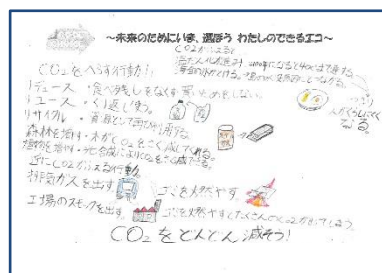 ～未来のためにいま、選ぼう わたしのできるエコ～
CO2がふえると
CO2をへらす行動!
リデュース・食べ残しをなくす 買いだめをしない。
リユース・くり返し使う。
リサイクル・資源として再び利用する
森林を増す・木がCO2をさく減してくれる。
植物を増す・光合成によりCO2をさく減できる。
逆にCO2がふえる行動
排気ガスを出す
ゴミを燃やす
工場のスモッグを出す
ゴミを燃やすとたくさんのCO2がでてしまう。
CO2をどんどん減そう!